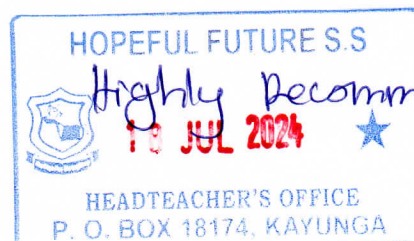 HOPEFUL FUTURE S.S
Highly Recomm
JUL 2024
HEADTEACHER'S OFFICE
P. O. BOX 18174, KAYUNGA